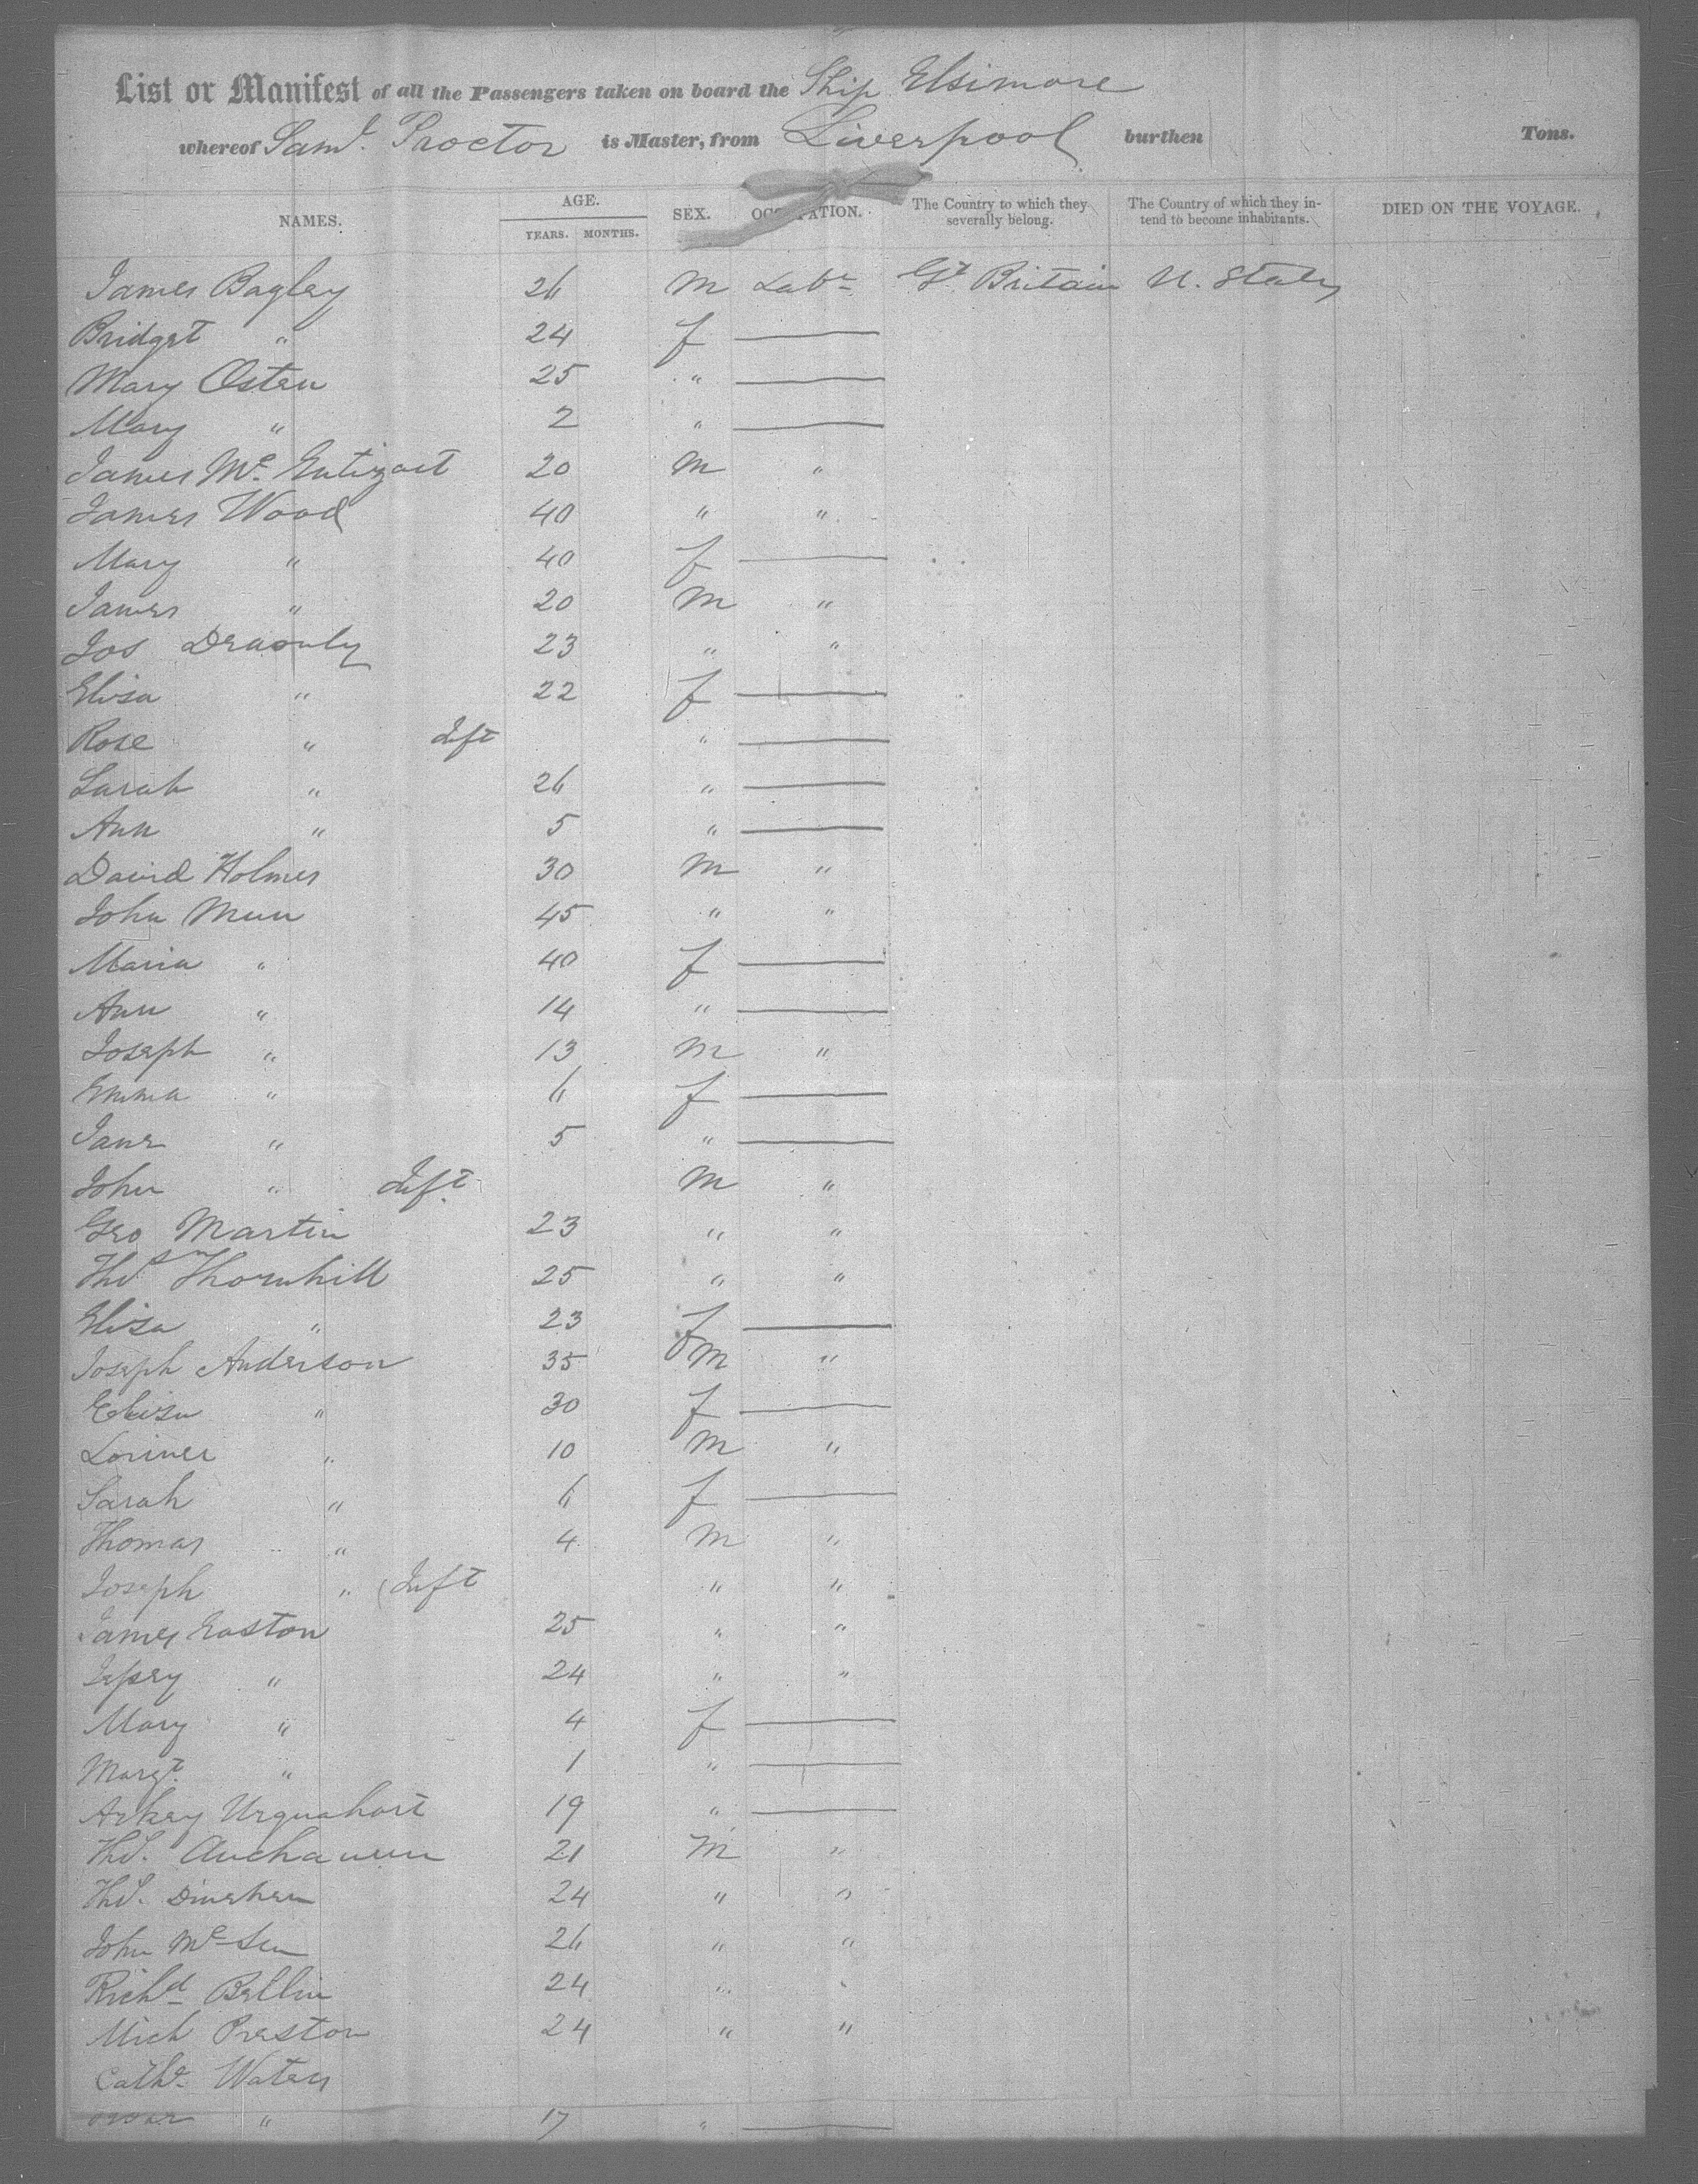 List or Manifest of all the Passengers taken on board the Ship Elsimore
whereof Saml. Proctor is Master, from Liverpool burthen Tons.
NAMES. AGE. YEARS. MONTHS. SEX. OCCUPATION. The Country to which they severally belong. The Country of which they intend to become inhabitants. DIED ON THE VOYAGE.
James Bagley 26 M Labr Gt. Britain U. States
Bridget " 24 f ———
Mary Osten 25 " ———
Mary " 2 " ———
James Mc 20 M "
James Wood 40 " "
Mary " 40 f ———
James " 20 M "
Jos 23 " "
Elisa " 22 f ———
Rose " Inft " ———
Sarah " 26 " ———
Ann " 5 " ———
David Holmes 30 M "
John Munn 45 " "
Maria " 40 f ———
Ann " 14 " ———
Joseph " 13 M "
Emma " 6 f ———
Jane " 5 " ———
John " Inft M "
Geo Martin 23 " "
Thos Thornhill 25 " "
Elisa " 23 f ———
Joseph Anderson 35 M "
Eliza " 30 f ———
Lorimer " 10 M "
Sarah " 6 f ———
Thomas " 4 M "
Joseph " Inft " "
James Easton 25 " "
" 24 " "
Mary " 4 f ———
Margt. " 1 " ———
Urquahart 19 " ———
Thos. 21 M "
Thos. 24 " "
John Mc 26 " "
Richd Bellin 24 " "
Mich Preston 24 " "
Cathe Waters
" 17 " ———